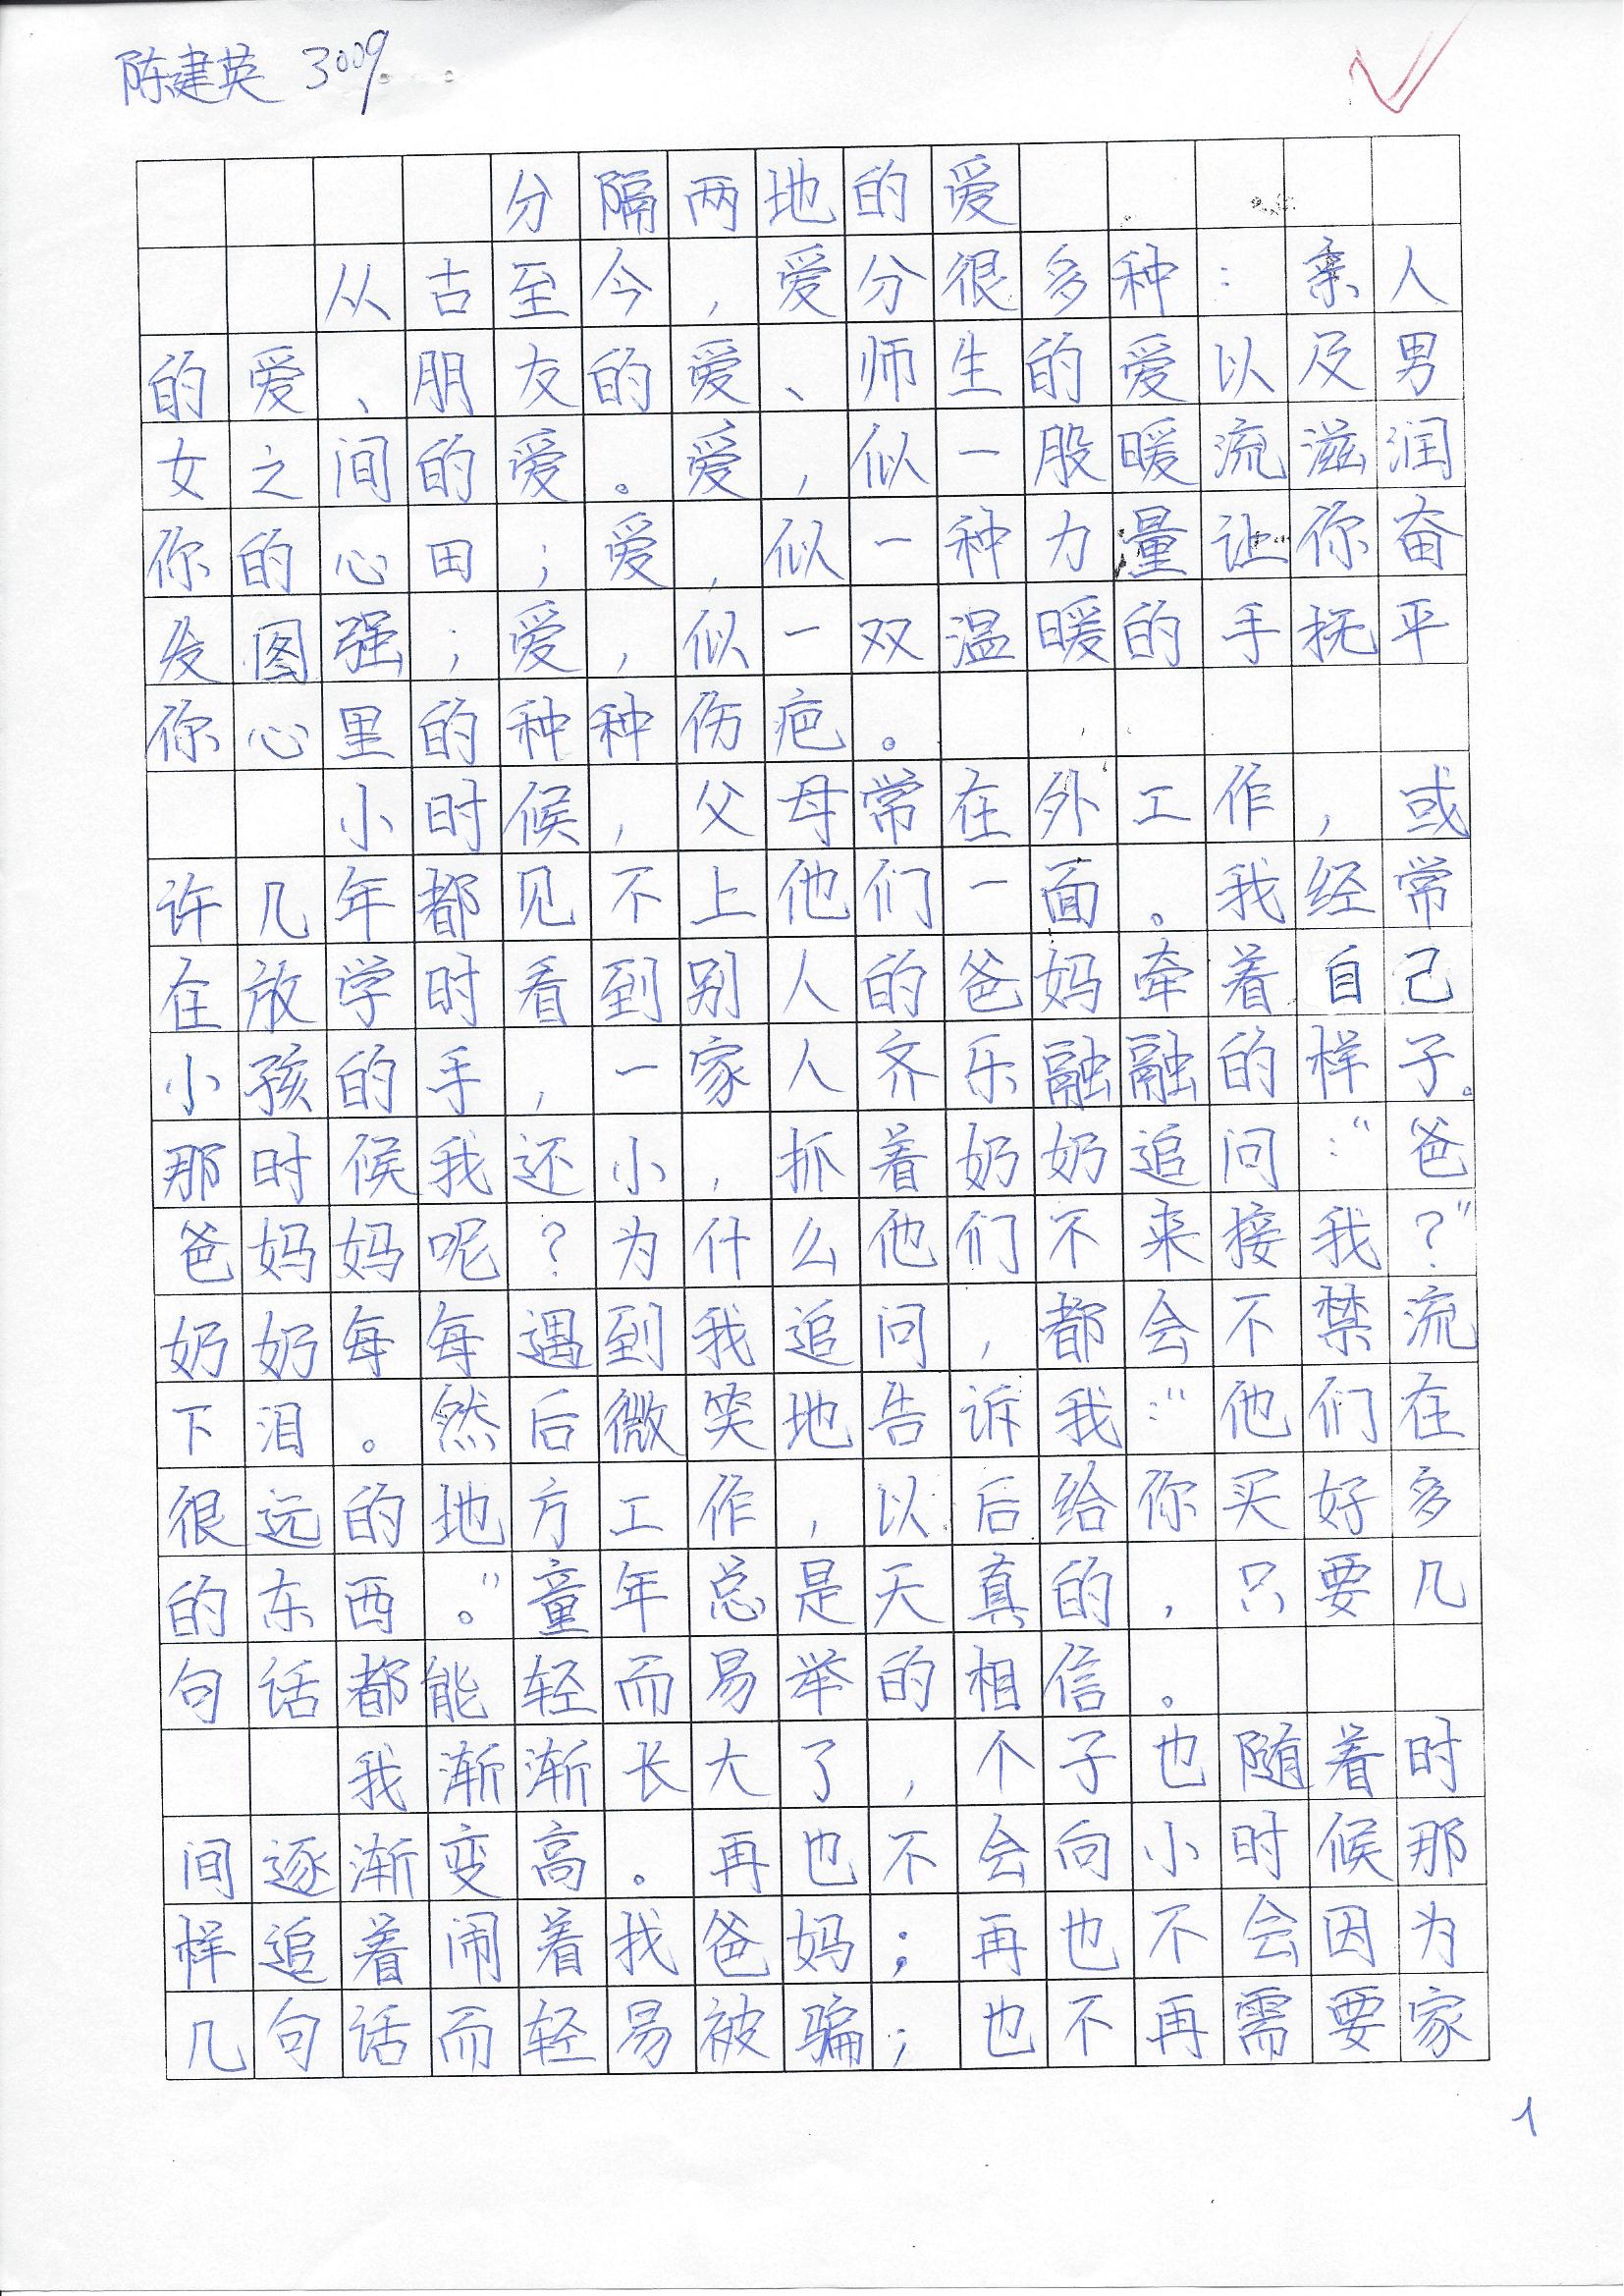 陈建英 3009
分隔两地的爱
从古至今，爱分很多种：亲人
的爱、朋友的爱、师生的爱以及男
女之间的爱。爱，似一股暖流滋润
你的心田；爱，似一种力量让你奋
发图强；爱，似一双温暖的手抚平
你心里的种种伤疤。
小时候，父母常在外工作，或
许几年都见不上他们一面。我经常
在放学时看到别人的爸妈牵着自己
小孩的手，一家人齐乐融融的样子。
那时候我还小，抓着奶奶追问：“爸
爸妈妈呢？为什么他们不来接我？”
奶奶每每遇到我追问，都会不禁流
下泪。然后微笑地告诉我：“他们在
很远的地方工作，以后给你买好多
的东西。”童年总是天真的，只要几
句话都能轻而易举的相信。
我渐渐长大了，个子也随着时
间逐渐变高。再也不会向小时候那
样追着闹着找爸妈；再也不会因为
几句话而轻易被骗；也不再需要家
1